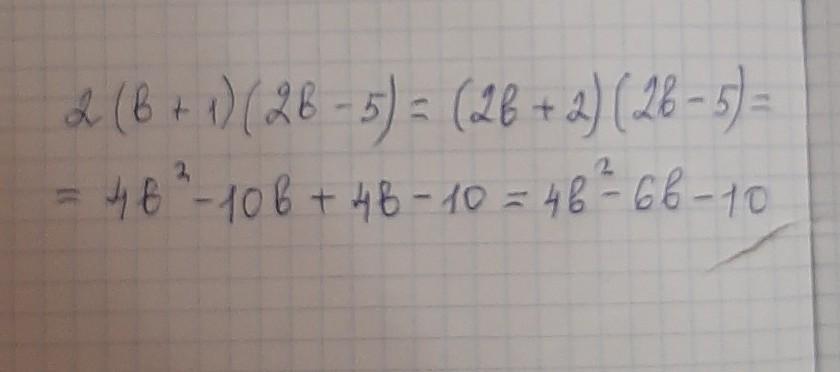 2(b + 1)(2b - 5) = (2b + 2)(2b - 5) =
= 4b² - 10b + 4b - 10 = 4b² - 6b - 10